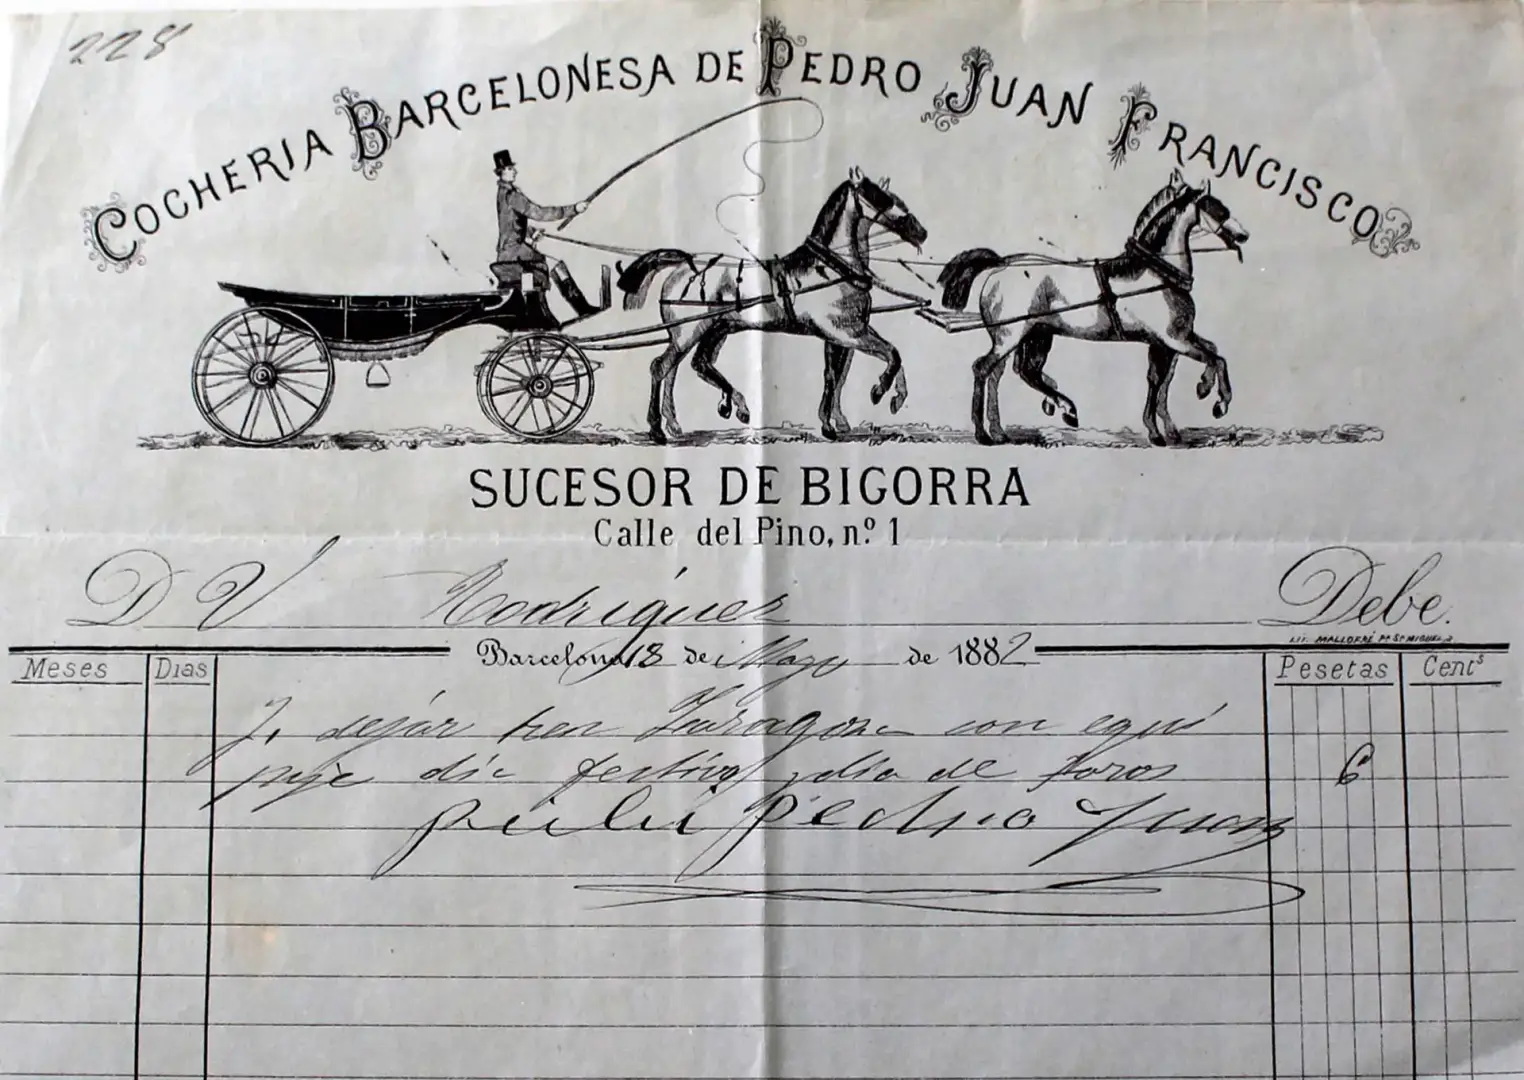 228
COCHERIA BARCELONESA DE PEDRO JUAN FRANCISCO
SUCESOR DE BIGORRA
Calle del Pino, n.º 1
D V Rodriguez Debe.
LIT. MALLOFRÉ
Barcelona 18 de Mayo de 1882
Meses Dias Pesetas Cent.s
dejar tren Zaragoza con equi
paje dia festivo y dia de toros 6
Pedro Juan